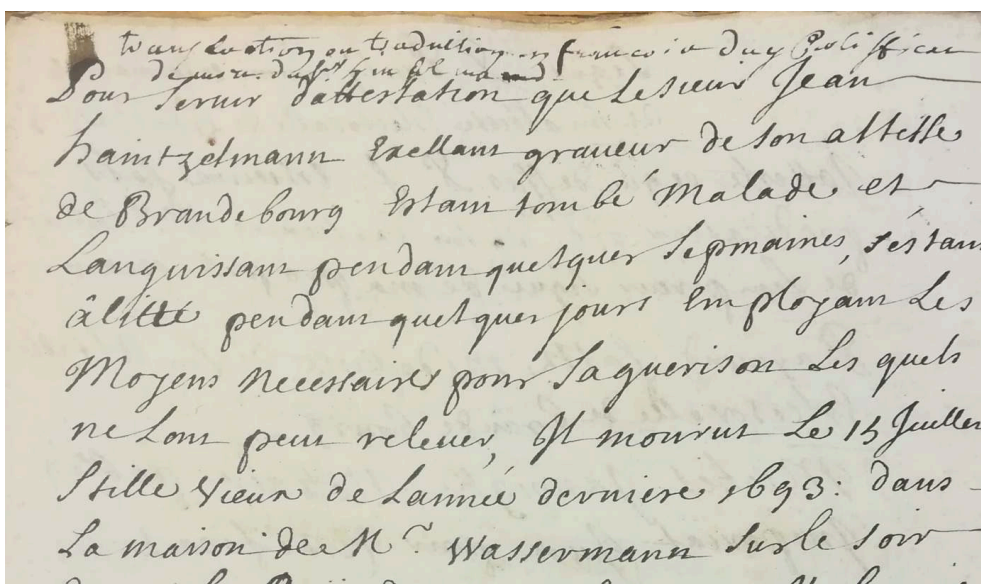 translation ou traduction en francois du Certifficat
Pour servir dattestation que Le sieur Jean
haintzelmann Exellant graveur de son altesse
de Brandebourg Estant tombé Malade et
Languissant pendant quelques Sepmaines, s'estant
âlitté pendant quelques jours Employant Les
Moyens Necessaires pour Saguerison Les quels
ne Lont peut relever, Il mourut Le 15 Juillet
Stille Vieux de Lannéé derniere 1693: dans
La maison de Mr. Wassermann Sur le soir